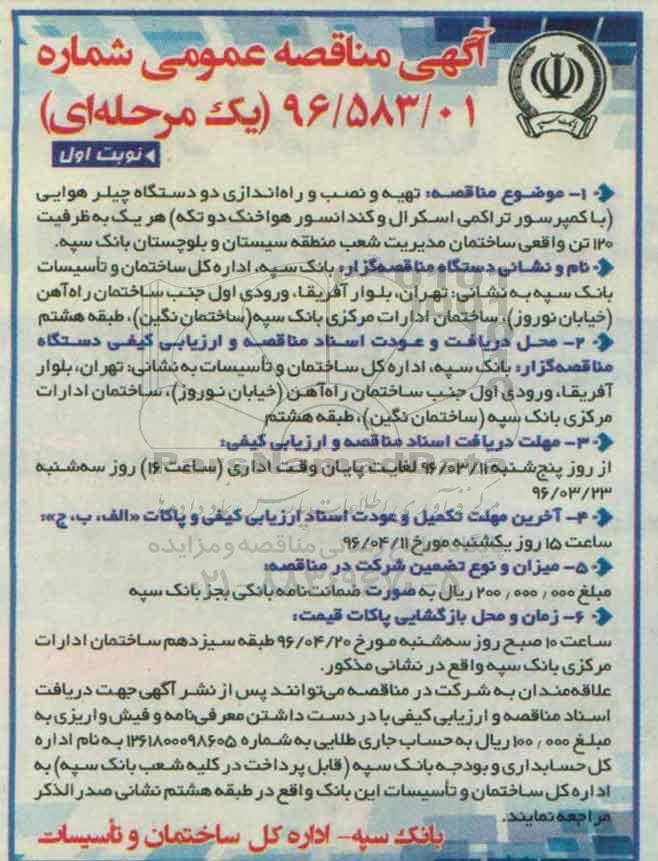 آگهی مناقصه عمومی شماره
۹۶/۵۸۳/۰۱ (یک مرحله‌ای)
نوبت اول
بانک سپه
۱- موضوع مناقصه: تهیه و نصب و راه‌اندازی دو دستگاه چیلر هوایی
(با کمپرسور تراکمی اسکرال و کندانسور هواخنک دو تکه) هر یک به ظرفیت
۱۲۰ تن واقعی ساختمان مدیریت شعب منطقه سیستان و بلوچستان بانک سپه.
نام و نشانی دستگاه مناقصه‌گزار: بانک سپه، اداره کل ساختمان و تأسیسات
بانک سپه به نشانی: تهران، بلوار آفریقا، ورودی اول جنب ساختمان راه‌آهن
(خیابان نوروز)، ساختمان ادارات مرکزی بانک سپه (ساختمان نگین)، طبقه هشتم
۲- محل دریافت و عودت اسناد مناقصه و ارزیابی کیفی دستگاه
مناقصه‌گزار: بانک سپه، اداره کل ساختمان و تأسیسات به نشانی: تهران، بلوار
آفریقا، ورودی اول جنب ساختمان راه‌آهن (خیابان نوروز)، ساختمان ادارات
مرکزی بانک سپه (ساختمان نگین)، طبقه هشتم
۳- مهلت دریافت اسناد مناقصه و ارزیابی کیفی:
از روز پنج‌شنبه ۹۶/۰۳/۱۱ لغایت پایان وقت اداری (ساعت ۱۶) روز سه‌شنبه
۹۶/۰۳/۲۳
۴- آخرین مهلت تکمیل و عودت اسناد ارزیابی کیفی و پاکات «الف، ب، ج»:
ساعت ۱۵ روز یکشنبه مورخ ۹۶/۰۴/۱۱
۵- میزان و نوع تضمین شرکت در مناقصه:
مبلغ ۲۰۰٫۰۰۰٫۰۰۰ ریال به صورت ضمانت‌نامه بانکی بجز بانک سپه
۶- زمان و محل بازگشایی پاکات قیمت:
ساعت ۱۰ صبح روز سه‌شنبه مورخ ۹۶/۰۴/۲۰ طبقه سیزدهم ساختمان ادارات
مرکزی بانک سپه واقع در نشانی مذکور.
علاقه‌مندان به شرکت در مناقصه می‌توانند پس از نشر آگهی جهت دریافت
اسناد مناقصه و ارزیابی کیفی با در دست داشتن معرفی‌نامه و فیش واریزی به
مبلغ ۱۰۰٫۰۰۰ ریال به حساب جاری طلایی به شماره ۱۳۶۱۸۰۰۰۹۸۶۰۵ به نام اداره
کل حسابداری و بودجه بانک سپه (قابل پرداخت در کلیه شعب بانک سپه) به
اداره کل ساختمان و تأسیسات این بانک واقع در طبقه هشتم نشانی صدرالذکر
مراجعه نمایند.
بانک سپه- اداره کل ساختمان و تأسیسات